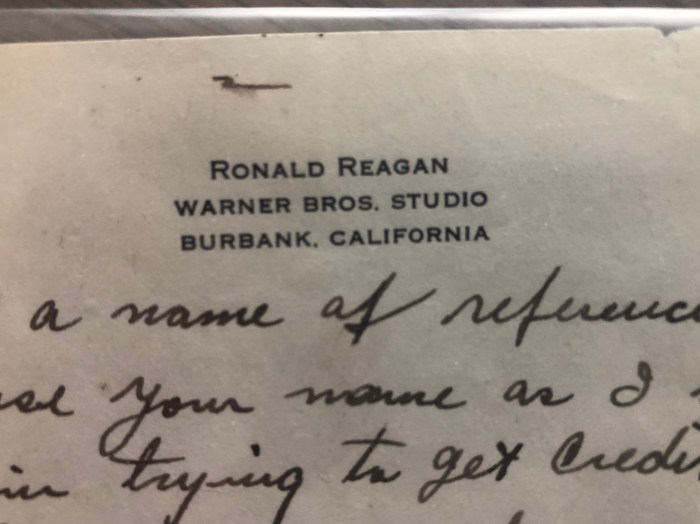 RONALD REAGAN
WARNER BROS. STUDIO
BURBANK, CALIFORNIA
a name of reference
your name as I
trying to get credit